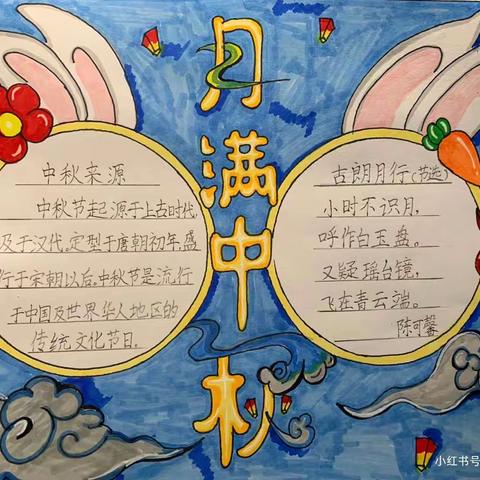 月满中秋
中秋来源
中秋节起源于上古时代,
及于汉代.定型于唐朝初年,盛
行于宋朝以后.中秋节是流行
于中国及世界华人地区的
传统文化节日.
古朗月行(节选)
小时不识月,
呼作白玉盘。
又疑瑶台镜,
飞在青云端。
陈可馨
小红书号